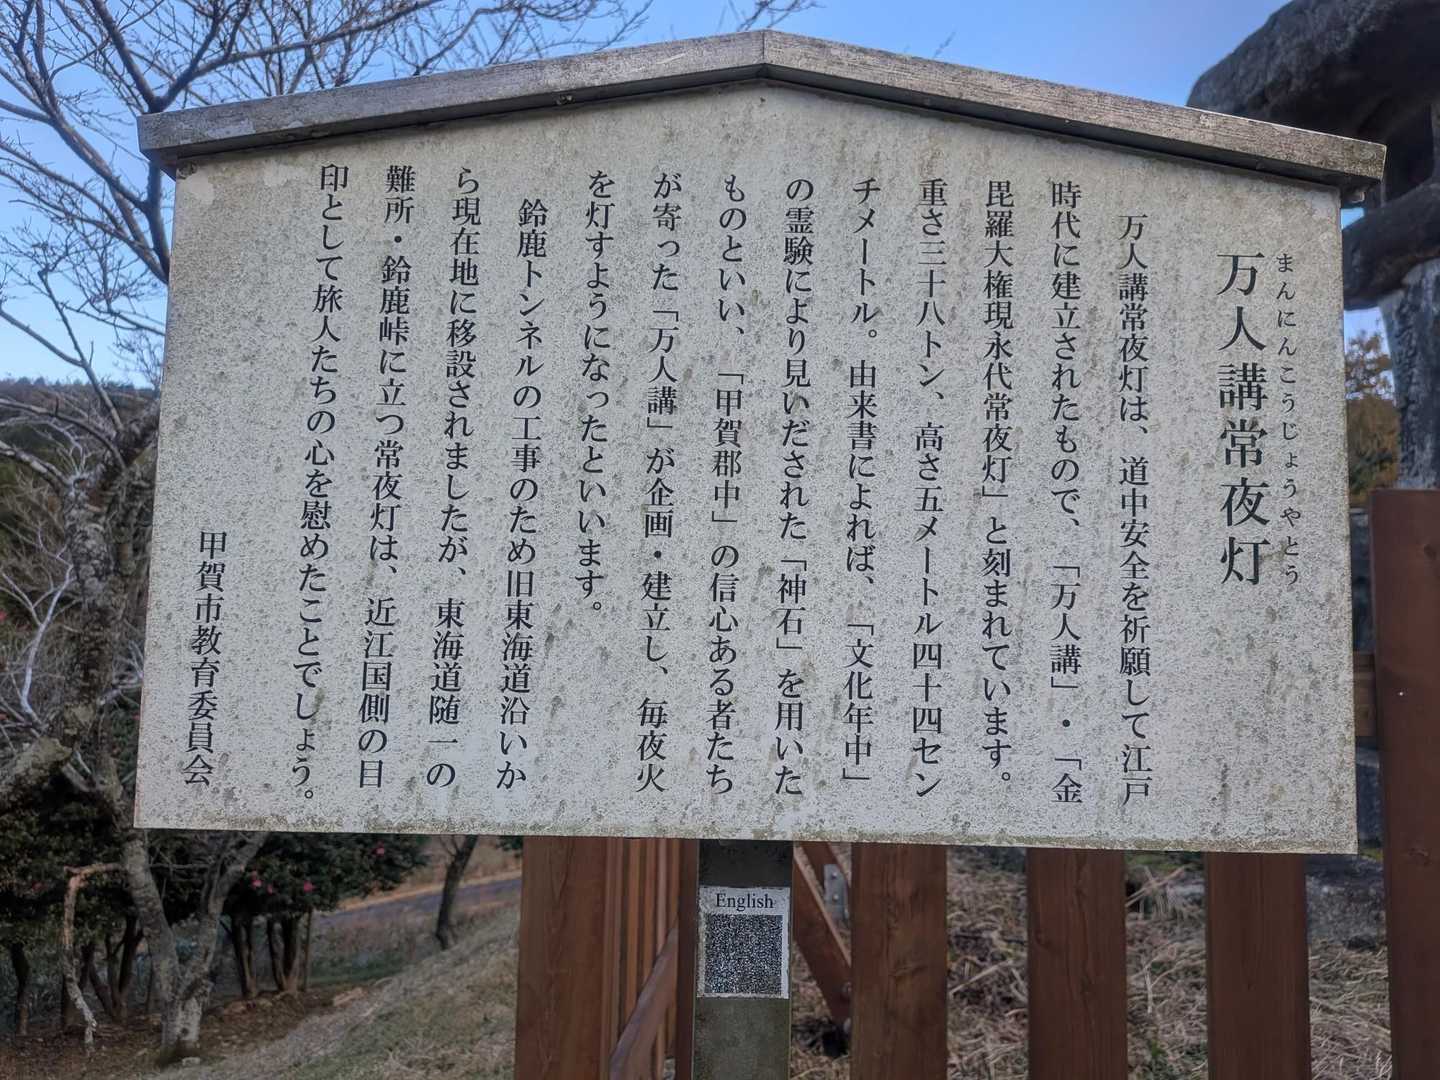 まんにんこうじょうやとう
万人講常夜灯
万人講常夜灯は、道中安全を祈願して江戸
時代に建立されたもので、「万人講」・「金
毘羅大権現永代常夜灯」と刻まれています。
重さ三十八トン、高さ五メートル四十四セン
チメートル。由来書によれば、「文化年中」
の霊験により見いだされた「神石」を用いた
ものといい、「甲賀郡中」の信心ある者たち
が寄った「万人講」が企画・建立し、毎夜火
を灯すようになったといいます。
鈴鹿トンネルの工事のため旧東海道沿いか
ら現在地に移設されましたが、東海道随一の
難所・鈴鹿峠に立つ常夜灯は、近江国側の目
印として旅人たちの心を慰めたことでしょう。
甲賀市教育委員会
English